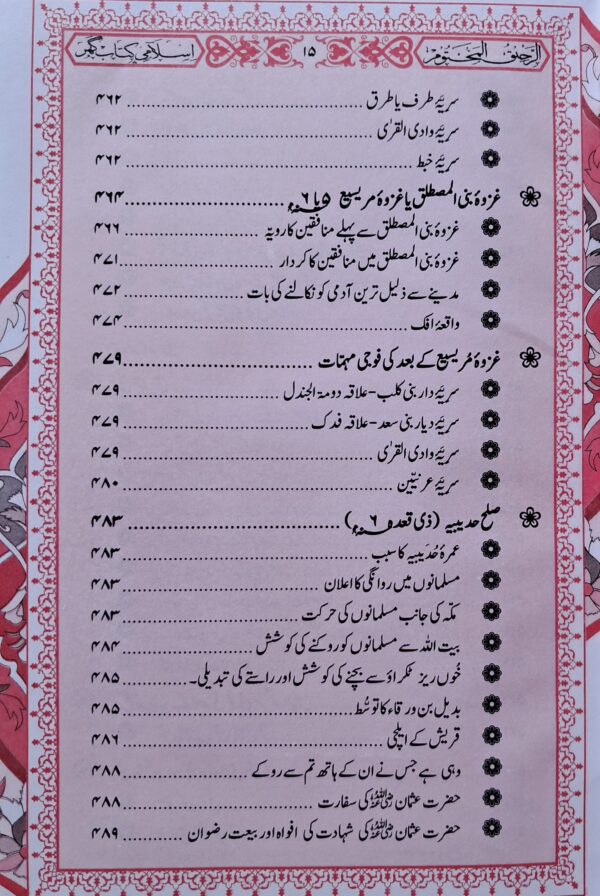 الرحیق المختوم ۱۵ اسلامی کتاب گھر
سریۂ طرف یا طرق ۴۶۲
سریۂ وادی القریٰ ۴۶۲
سریۂ خبط ۴۶۲
غزوۂ بنی المصطلق یا غزوۂ مریسیع ۵ یا ۶ھ ۴۶۴
غزوۂ بنی المصطلق سے پہلے منافقین کا رویہ ۴۶۶
غزوۂ بنی المصطلق میں منافقین کا کردار ۴۷۱
مدینے سے ذلیل ترین آدمی کو نکالنے کی بات ۴۷۲
واقعۂ افک ۴۷۴
غزوۂ مُریسیع کے بعد کی فوجی مہمّات ۴۷۹
سریۂ دار بنی کلب - علاقہ دومۃ الجندل ۴۷۹
سریۂ دیار بنی سعد - علاقہ فدک ۴۷۹
سریۂ وادی القریٰ ۴۷۹
سریۂ عرنیّین ۴۸۰
صلح حدیبیہ (ذی قعدہ ۶ھ) ۴۸۳
عمرۂ حُدَیبیہ کا سبب ۴۸۳
مسلمانوں میں روانگی کا اعلان ۴۸۳
مکّہ کی جانب مسلمانوں کی حرکت ۴۸۳
بیت اللہ سے مسلمانوں کو روکنے کی کوشش ۴۸۴
خُوں ریز ٹکراؤ سے بچنے کی کوشش اور راستے کی تبدیلی۔ ۴۸۵
بدیل بن ورقاء کا توسُّط ۴۸۵
قریش کے ایلچی ۴۸۶
وہی ہے جس نے ان کے ہاتھ تم سے روکے ۴۸۸
حضرت عثمان رضی اللہ عنہ کی سفارت ۴۸۸
حضرت عثمان رضی اللہ عنہ کی شہادت کی افواہ اور بیعت رضوان ۴۸۹